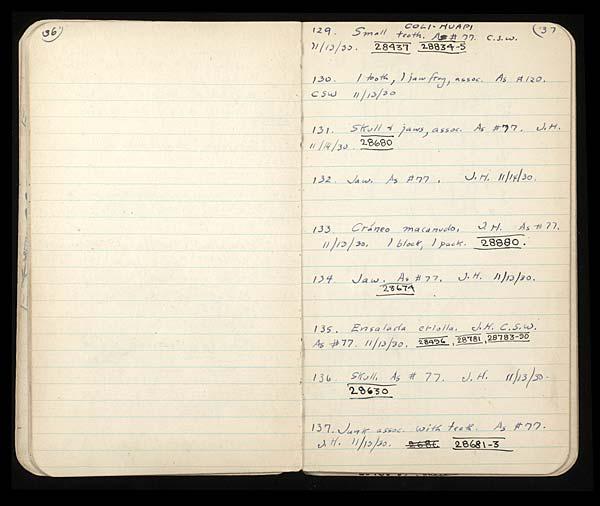 36
COLI-HUAPI
37
129. Small teeth. As # 77. C.S.W.
11/13/30. 28437 28834-5
130. 1 tooth, 1 jaw frag, assoc. As #120.
CSW 11/13/30
131. Skull & jaws, assoc. As #77. J.H.
11/14/30. 28680
132. Jaw. As #77. J.H. 11/14/30.
133. Cráneo macanudo. J.H. As #77.
11/13/30. 1 block, 1 pack. 28880.
134. Jaw. As #77. J.H. 11/13/30.
28674
135. Ensalada criolla. J.H. C.S.W.
As #77. 11/13/30. 28456, 28781, 28783-90
136. Skull. As # 77. J.H. 11/13/30.
28630
137. Junk assoc. with teeth. As #77.
J.H. 11/13/30. 28681-3